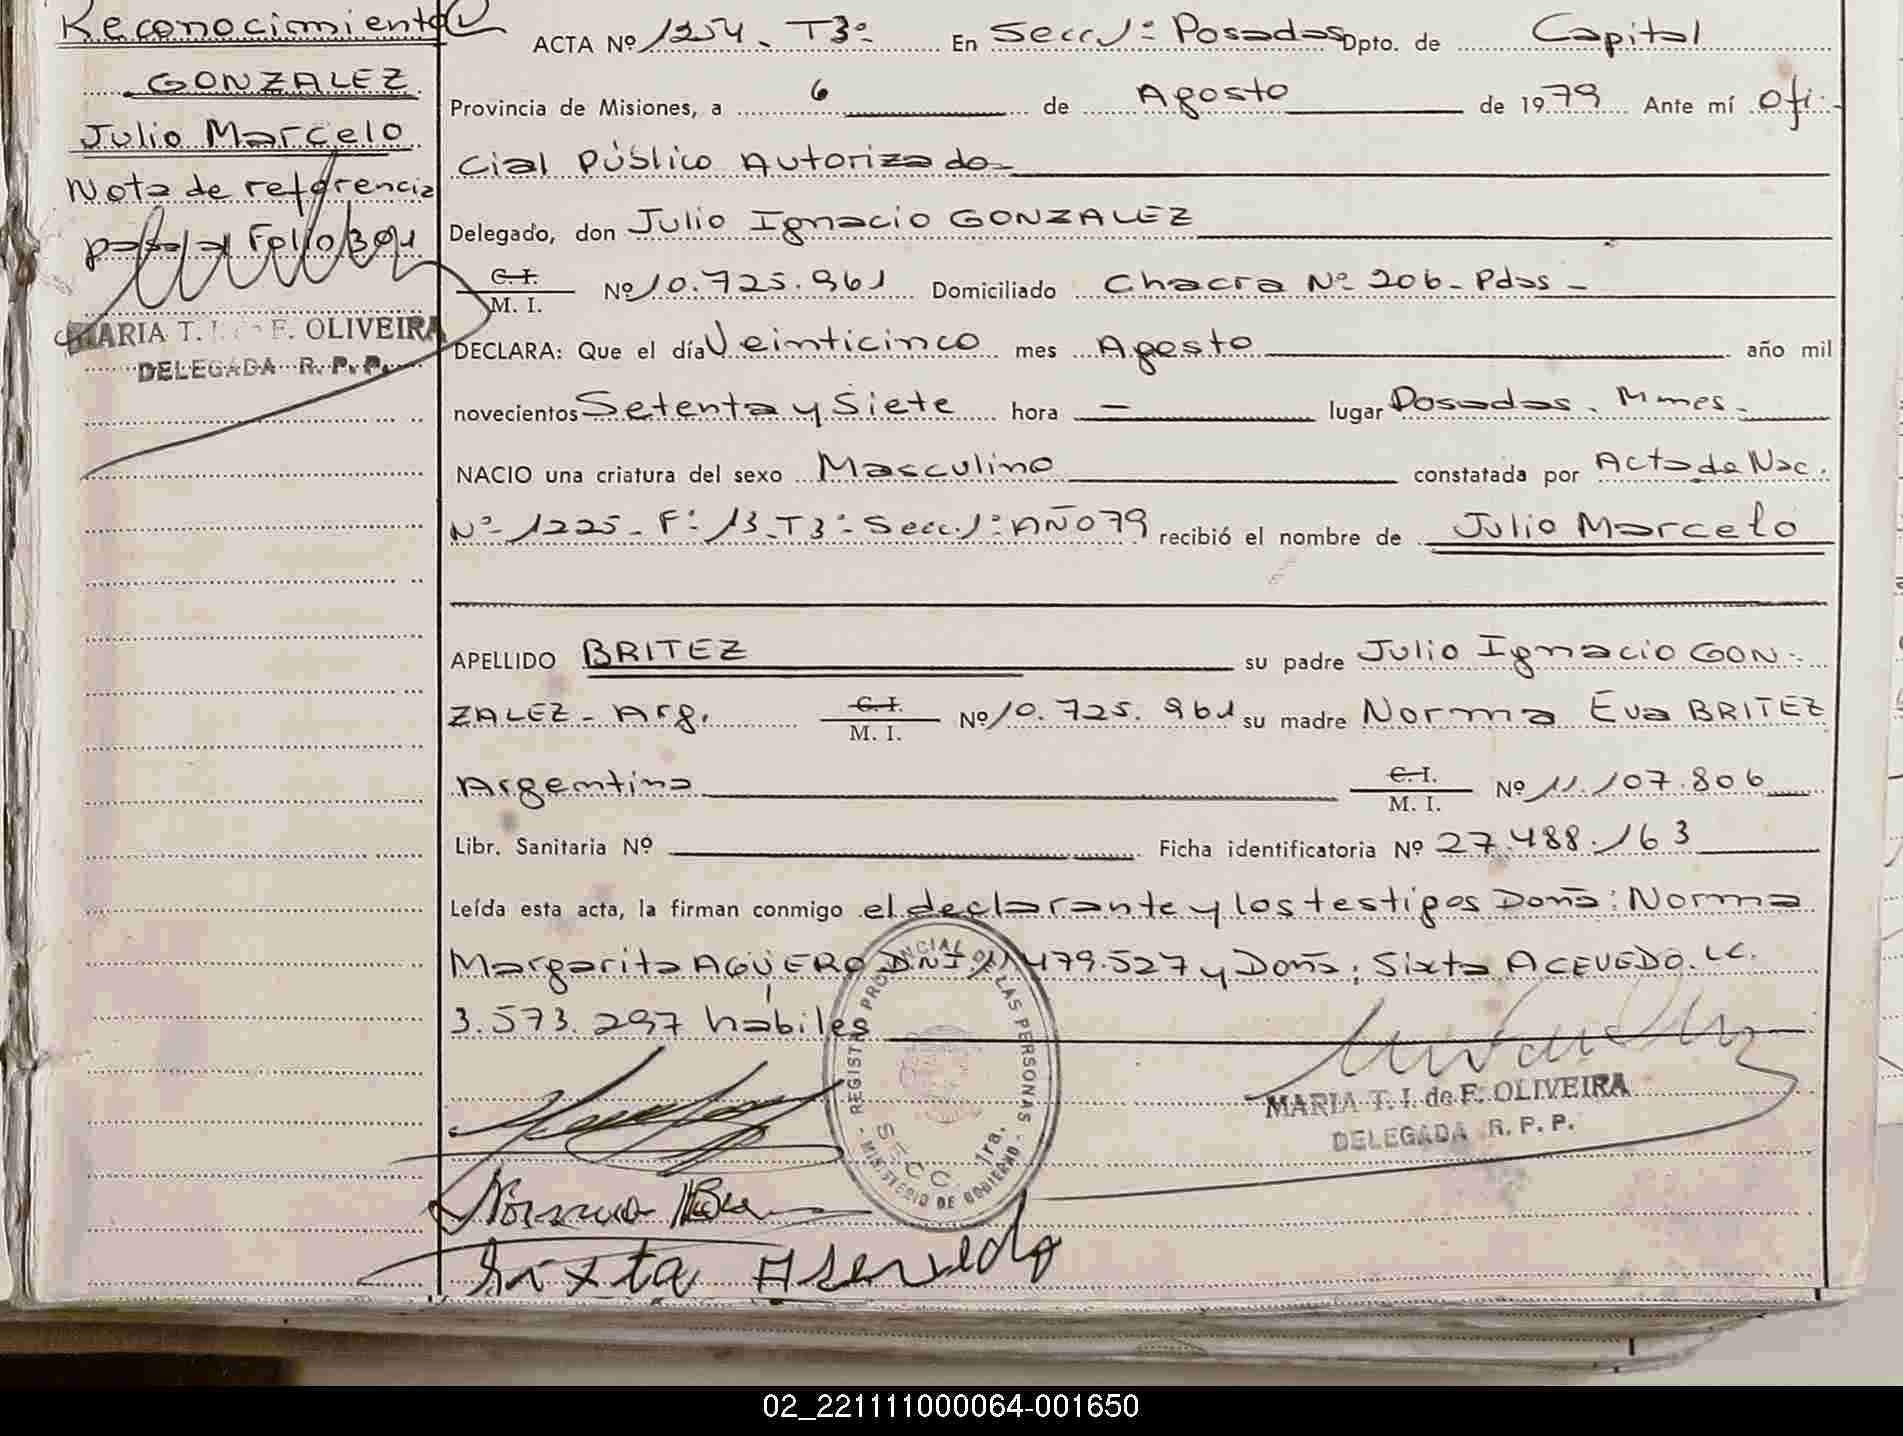 Reconocimiento
GONZALEZ
Julio Marcelo
Nota de referencia
pasa al Folio 301
MARIA T. I. de F. OLIVEIRA
DELEGADA R. P. P.
ACTA Nº 1254. T3º. En Secc. 1º Posadas Dpto. de Capital
Provincia de Misiones, a 6 de Agosto de 1979 Ante mí Ofi-
cial Público Autorizado
Delegado, don Julio Ignacio GONZALEZ
C. I.
M. I. Nº 10.725.961 Domiciliado Chacra Nº 206 - Pdas -
DECLARA: Que el día Veinticinco mes Agosto año mil
novecientos Setenta y Siete hora — lugar Posadas. Mnes.
NACIO una criatura del sexo Masculino constatada por Acta de Nac.
Nº 1225 - Fº 13 - T3º - Secc. 1º AÑO 79 recibió el nombre de Julio Marcelo
APELLIDO BRITEZ su padre Julio Ignacio GON-
ZALEZ - Arg. C. I. M. I. Nº 10.725.961 su madre Norma Eva BRITEZ
Argentina C. I. M. I. Nº 11.107.806
Libr. Sanitaria Nº Ficha identificatoria Nº 27.488.163
Leída esta acta, la firman conmigo el declarante y los testigos Doña: Norma
Margarita AGÜERO DNI 11.479.527 y Doña: Sixta ACEVEDO. LC.
3.573.297 hábiles
REGISTRO PROVINCIAL DE LAS PERSONAS
SECC 1ra.
MINISTERIO DE GOBIERNO
MARIA T. I. de F. OLIVEIRA
DELEGADA R. P. P.
Sixta Asevedo
02_221111000064-001650